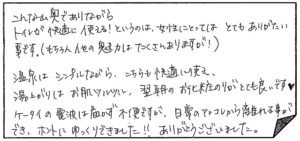 こんな山奥でありながら
トイレが快適に使える！というのは、女性にとっては とてもありがたい
事です。(もちろん 他の魅力は たくさんありますが！)
温泉は シンプルながら、こちらも快適に使え、
湯上がりは お肌ツルツル、翌朝の お化粧のりがとても良いです♥
ケータイの電波は届かず 不便ですが、日常のアレコレから離れる事が
でき、ホントに ゆっくりできました!! ありがとうございました。